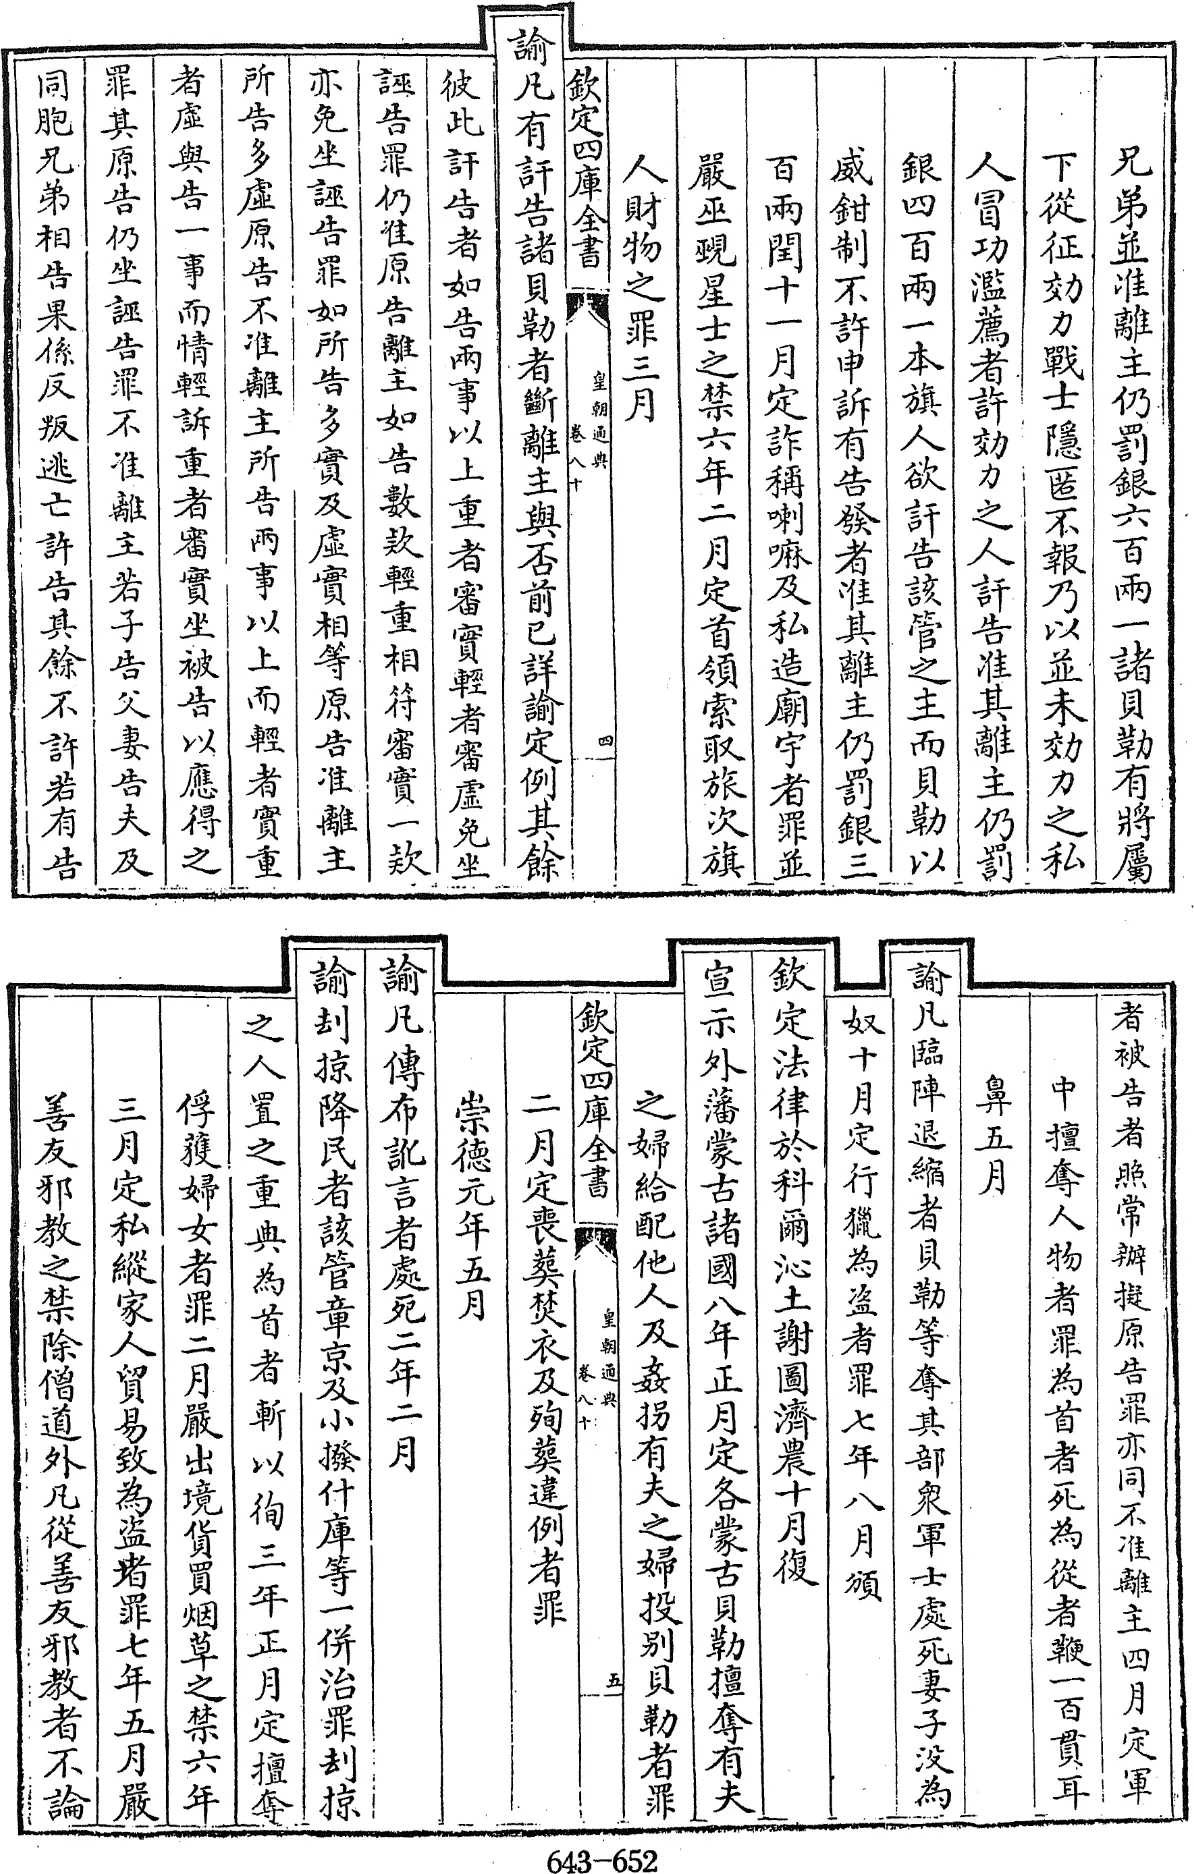 兄弟並准離主仍罰銀六百兩一諸貝勒有將屬
下從征効力戰士隱匿不報乃以並未効力之私
人冒功濫薦者許効力之人訐告准其離主仍罰
銀四百兩一本旗人欲訐告該管之主而貝勒以
威鉗制不許申訴有告發者准其離主仍罰銀三
百兩閏十一月定詐稱喇嘛及私造廟宇者罪並
嚴巫覡星士之禁六年二月定首領索取旅次旗
人財物之罪三月
欽定四庫全書
皇朝通典
卷八十
四
諭凡有訐告諸貝勒者斷離主與否前已詳諭定例其餘
彼此訐告者如告兩事以上重者審實輕者審虛免坐
誣告罪仍准原告離主如告數款輕重相符審實一款
亦免坐誣告罪如所告多實及虛實相等原告准離主
所告多虛原告不准離主所告兩事以上而輕者實重
者虛與告一事而情輕訴重者審實坐被告以應得之
罪其原告仍坐誣告罪不准離主若子告父妻告夫及
同胞兄弟相告果係反叛逃亡許告其餘不許若有告
者被告者照常辦擬原告罪亦同不准離主四月定軍
中擅奪人物者罪為首者死為從者鞭一百貫耳
鼻五月
諭凡臨陣退縮者貝勒等奪其部眾軍士處死妻子沒為
奴十月定行獵為盜者罪七年八月頒
欽定法律於科爾沁土謝圖濟農十月復
宣示外藩蒙古諸國八年正月定各蒙古貝勒擅奪有夫
之婦給配他人及姦拐有夫之婦投別貝勒者罪
欽定四庫全書
皇朝通典
卷八十
五
二月定喪葬焚衣及殉葬違例者罪
崇德元年五月
諭凡傳布訛言者處死二年二月
諭刦掠降民者該管章京及小撥什庫等一併治罪刦掠
之人置之重典為首者斬以徇三年正月定擅奪
俘獲婦女者罪二月嚴出境貨買烟草之禁六年
三月定私縱家人貿易致為盜者罪七年五月嚴
善友邪教之禁除僧道外凡從善友邪教者不論
643-652